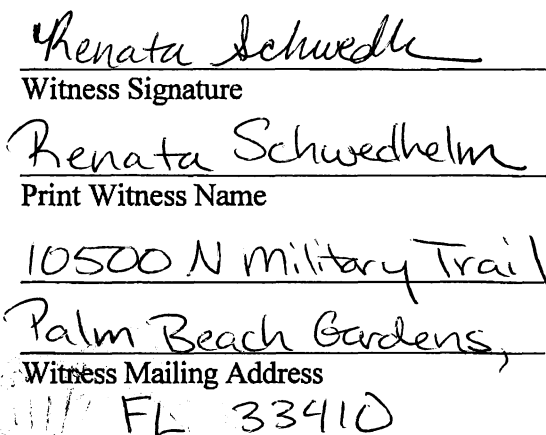 Renata Schwedh
Witness Signature
Renata Schwedhelm
Print Witness Name
10500 N Military Trail
Palm Beach Gardens,
Witness Mailing Address
FL 33410